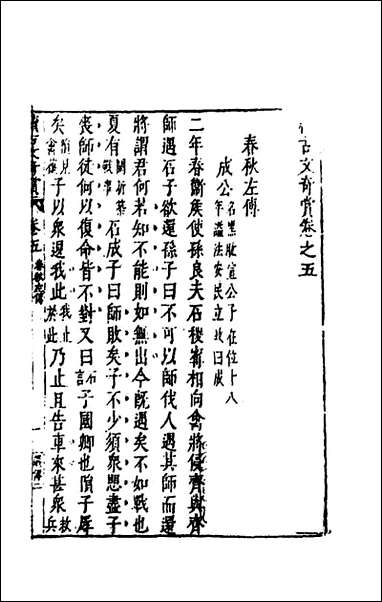 古文奇賞卷之五
春秋左傳
成公名黑肱宣公子在位十八年諡法安民立政曰成
二年春衞侯使孫良夫石稷甯相向禽將侵齊與齊
師遇石子欲還孫子曰不可以師伐人遇其師而還
將謂君何若知不能則如無出今既遇矣不如戰也
夏有石成子曰師敗矣子不少須衆懼盡子
喪師徒何以復命皆不對又曰子國卿也隕子辱
矣子以衆退我此乃止且告車來甚衆
古文奇賞 卷五 春秋左傳 一